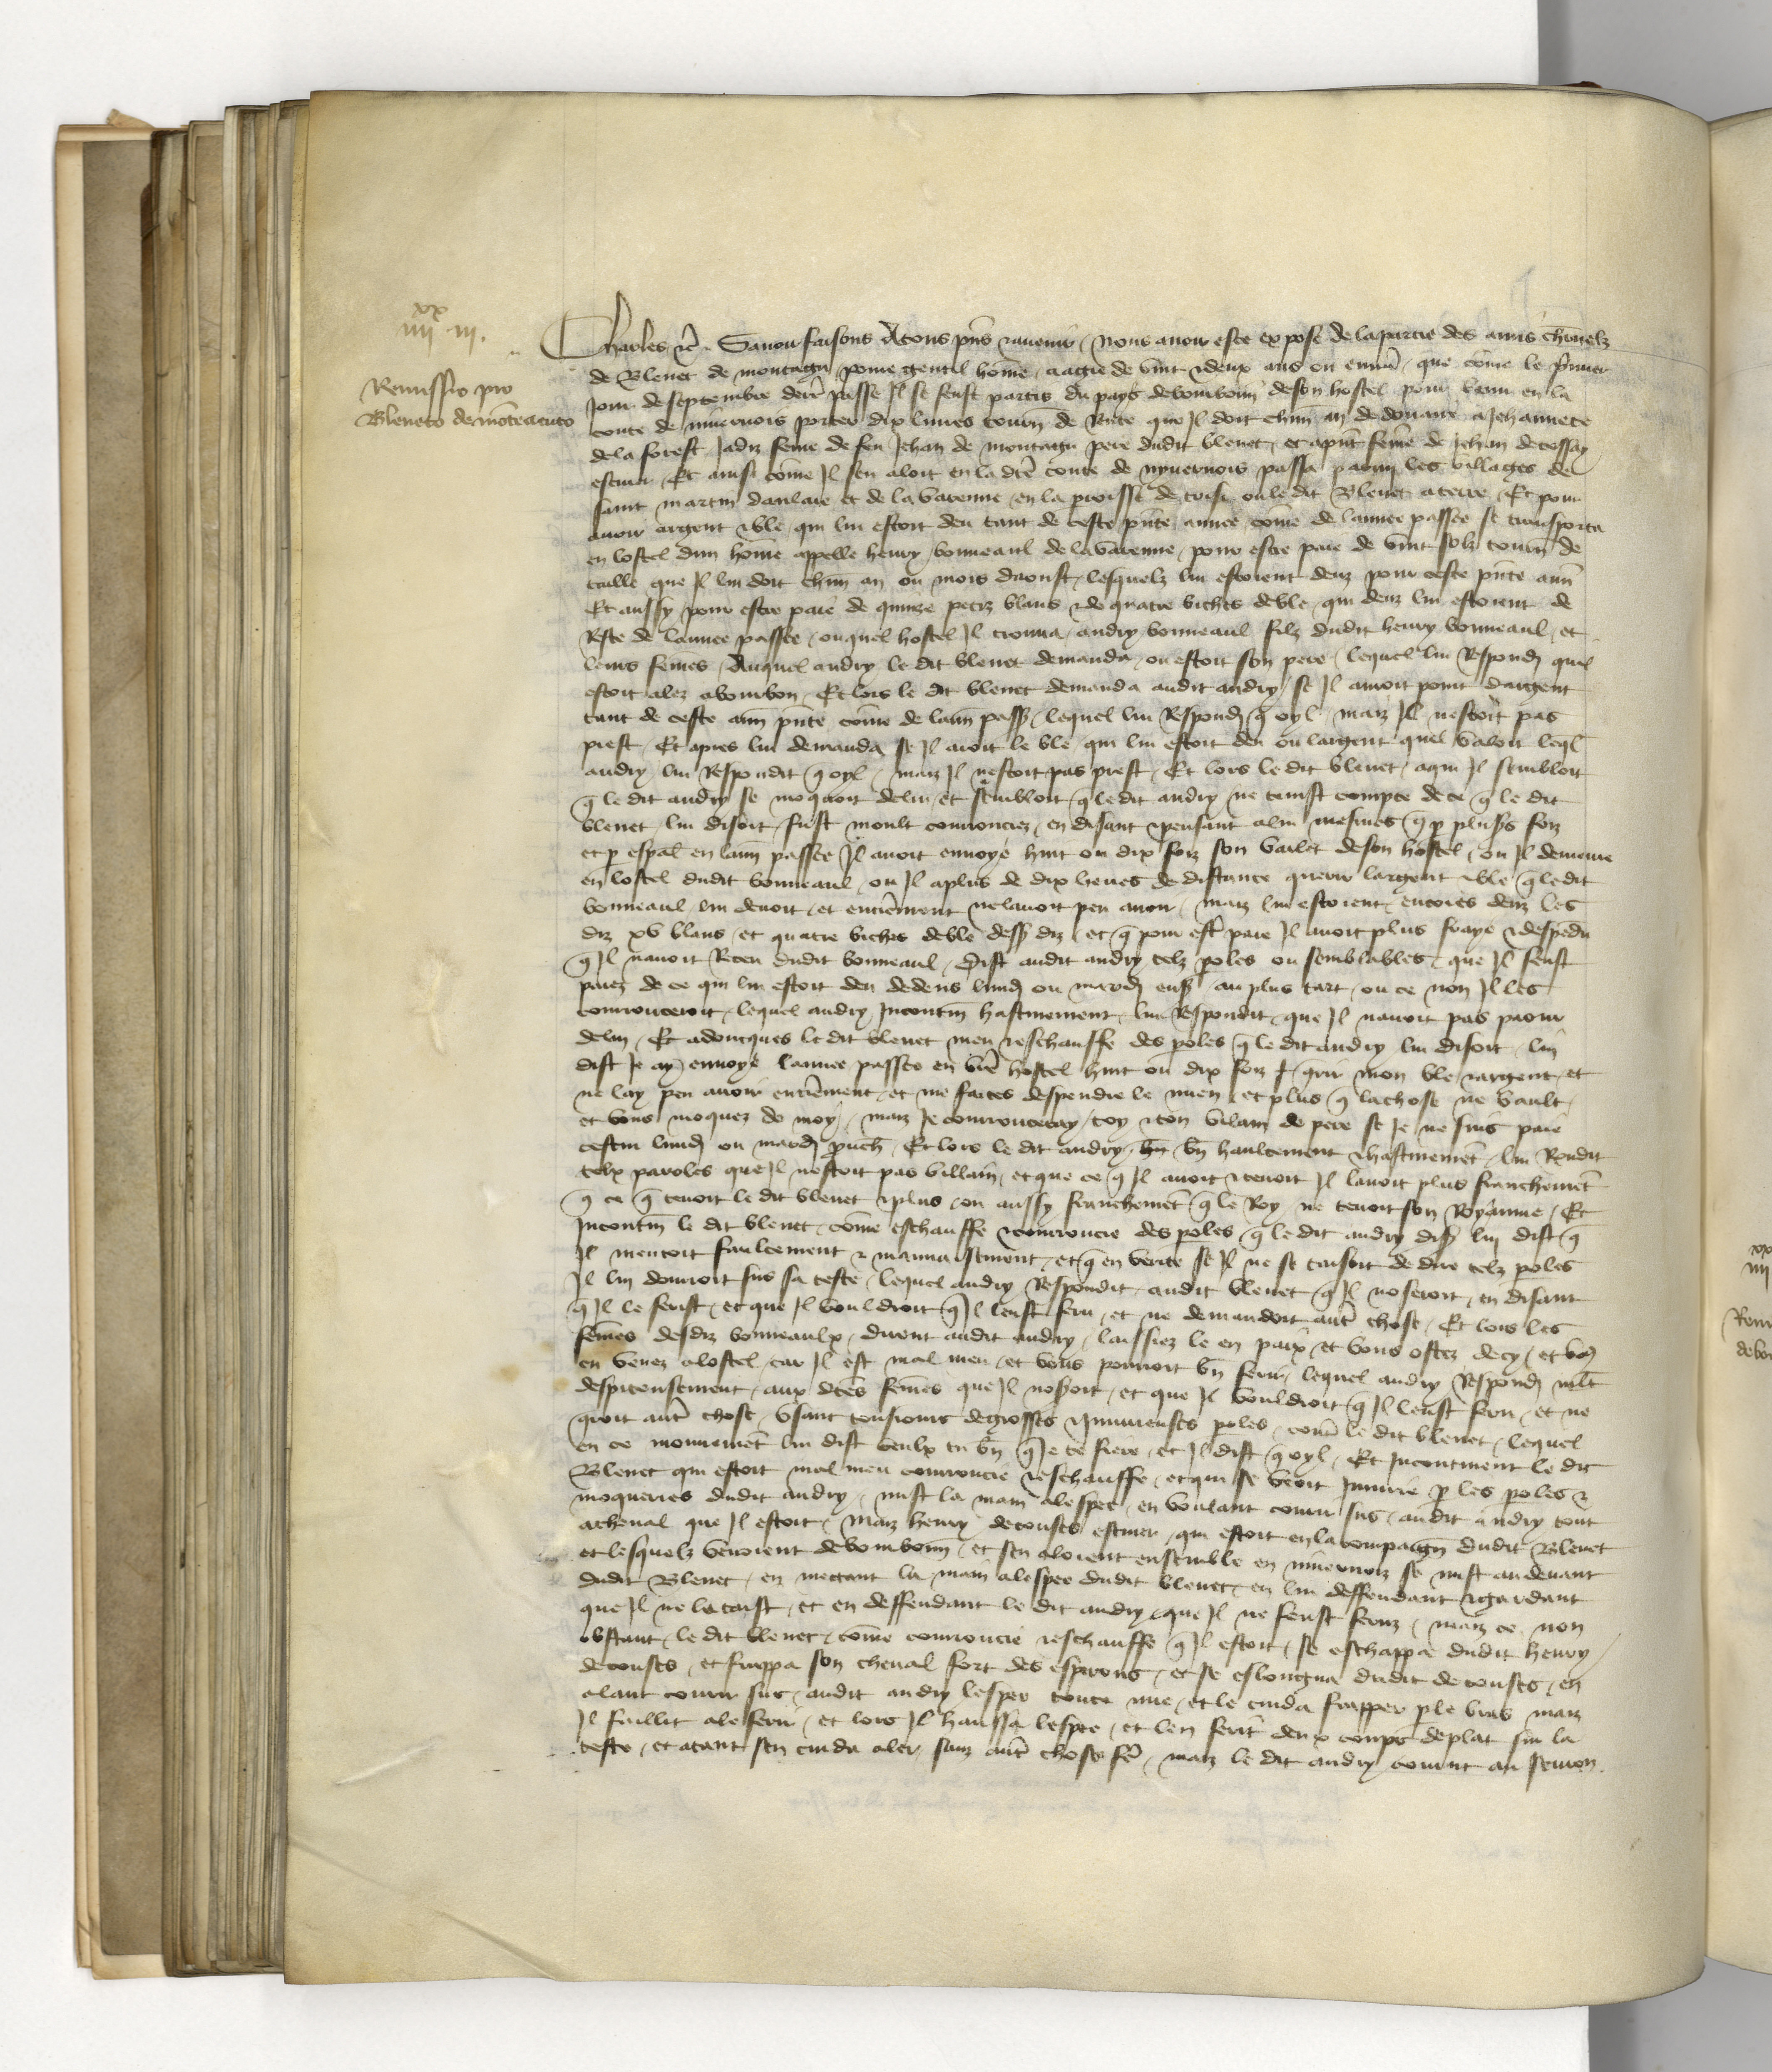 xx
iiii iii.
Remissio pro
Bleneto de mõteacuto
Charles &c̃. Savoir faisons A tous p̃ns & avenir / Nous avoir esté exposé de la partie des amis charnelz
de Blenet de montagu povre gentil hõme, aagié de vint & deux ans ou environ / que cõme le premier
jour de septembre derr̃ passé Il se feust partis du pays de bourbonnois de son hostel pour venir en la
conté de nivernois porter dix livres tourn̄ de Rente que Il doit chũn an de douaire a Jehannete
de la forest Jadiz fẽme de feu Jehan de montagu pere dudit blenet, et a p̃nt fẽme de Jehan de cossay
escuier / Et ainsi cõme Il sen aloit en la dc̃e conté de nyvernois passa parmi les villages de
saint martin et de la varenne en la p̃oisse de ou le dit Blenet a terre / Et pour
avoir argent & blé qui lui estoit deu tant de ceste p̃nte annee cõme de lannee passee se transporta
en lostel dun hõme appellé henry bonneaul de la varenne, pour estre paié de vint solz tourn̄ de
taille que Il lui doit chũn an ou mois daoust, lesquelz lui estoient deuz pour ceste p̃nte ann̄
Et aussy pour estre paié de quinze petiz blans & de quatre biches de blé qui deuz lui estoient de
Reste de lannee passee / ouquel hostel Il trouva andry bonneaul filz dudit henry bonneaul, et
leurs fẽmes / Auquel andry le dit blenet demanda ou estoit son pere / lequel lui Respondi quil
estoit alez a bourbon / Et lors le dit blenet demanda audit andry se Il avoit point dargent
tant de ceste ann̄ p̃nte cõme de lann̄ passee / lequel lui Respondi q̃ oyl / maiz Il nestoit pas
prest / Et apres lui demanda se Il avoit le blé qui lui estoit deu ou largent quel valoit leql̃
andry lui Respondit q̃ oyl / maiz Il nestoit pas prest / Et lors le dit blenet a qui Il sembloit
q̃ le dit andry se moquoit de lui et sembloit q̃ le dit andry ne tenist compte de ce q̃ le dit
blenet lui disoit, fust moult courrouciez, en disant & pensant a lui mesmes q̃ p plus̃s foiz
et p esp̃al en lann̄ passee Il avoit envoyé huit ou dix foiz son varlet de son hostel ou Il demeure
en lostel dudit bonneaul, ou Il a plus de dix lieues de distance querir largent & blé q̃ le dit
bonneaul lui devoit, et entierement ne lavoit peu avoir / maiz lui estoient encores deuz les
diz xv blans et quatre biches de blé dess diz / et q̃ pour estr̃ paié Il avoit plus frayé & despendu
q̃ Il navoit Receu dudit bonneaul / Dist audit andry telz poles ou semblables / que Il feust
paiez de ce qui lui estoit deu dedens lundi ou mardi ens̃ au plus tart, ou ce non Il les
courrouceroit / lequel andry Incontin̄ hastivement lui Respondit que Il navoit pas paour
de lui / Et adoncques le dit blenet meu & eschauffé des poles q̃ le dit andry lui disoit, lui
dist Je ay envoyé lannee passee en vr̃e hostel huit ou dix foiz q̃rir mon blé & argent, et
ne lay peu avoir entierement, et me faites despendre le mien et plus q̃ la chose ne vault,
et vous moquez de moy / maiz Je courrouceray toy & ton vilain de pere se Je ne suis paié
cestui lundi ou mardi p̃uch̃ / Et lors le dit andry bñ haultement & hastivemẽt lui Rendit
telx paroles que Il nestoit pas villain, et que ce q̃ Il avoit & tenoit Il lavoit plus franchemẽt
q̃ ce q̃ tenoit le dit blenet & plus ou aussy franchemẽt q̃ le Roy ne tenoit son Royaume / Et
Incontin̄ le dit blenet cõme eschauffé & courroucié des poles q̃ le dit andry dis̃ lui dist q̃
Il mentoit faulcement & mauvaisement, et q̃ en verité se Il ne se taisoit de dire telz poles
Il lui donrroit sus sa teste / lequel andry Respondit audit blenet q̃ Il noseroit, en disant
q̃ Il le ferist, et que Il vouldroit q̃ Il leust feru, et ne demandoit autr̃ chose / Et lors les
fẽmes desdiz bonneaulx, dirent audit andry / laissiez le en paix et vous ostez de cy, et vous
en venez a lostel car Il est mal meu, et vous pourroit bñ ferir / lequel andry Respondi mlt̃
despiteusement aux dc̃es fẽmes que Il noseroit, et que Il vouldroit q̃ Il leust feru, et ne
q̃roit autr̃ chose, usant tousiours de grosses & Injurieuses poles, contr̃ le dit blenet, lequel
en ce mouvemẽt lui dist veulx tu bñ q̃ Je te fiere, et Il dist q̃ oyl / Et Incontinent le dit
Blenet qui estoit mal meu courroucié & eschauffé, et qui se veoit Injurié p les poles &
moqueries dudit andry, mist la main a lespee en voulant courir sus audit andry tout
a cheval que Il estoit / Maiz henry de couses escuier qui estoit en la compaign̄ dudit Blenet
et lesquelz venoient de bourbonn̄ et sen aloient ensemble en nivernoiz se mist au devant
dudit Blenet, en mettant la main a lespee dudit blenet, en lui deffendant & gardant
que Il ne la traist, et en deffendant le dit andry, que Il ne feust feruz / maiz ce non
obstant le dit blenet cõme courroucié & eschauffé q̃ Il estoit, se eschappa dudit henry
de couses, et frappa son cheval fort des esprons, et se eslongna dudit de couses, en
alant courir sus audit andry lespee toute nue, et le cuida frapper p le bras maiz
Il faillit a le ferir, et lors Il haussa lespee, et len ferit deux coups de plat sur la
teste, et atant sen cuida aler sanz autr̃ chose fẽ / maiz le dit andry courut au
xx
iiii